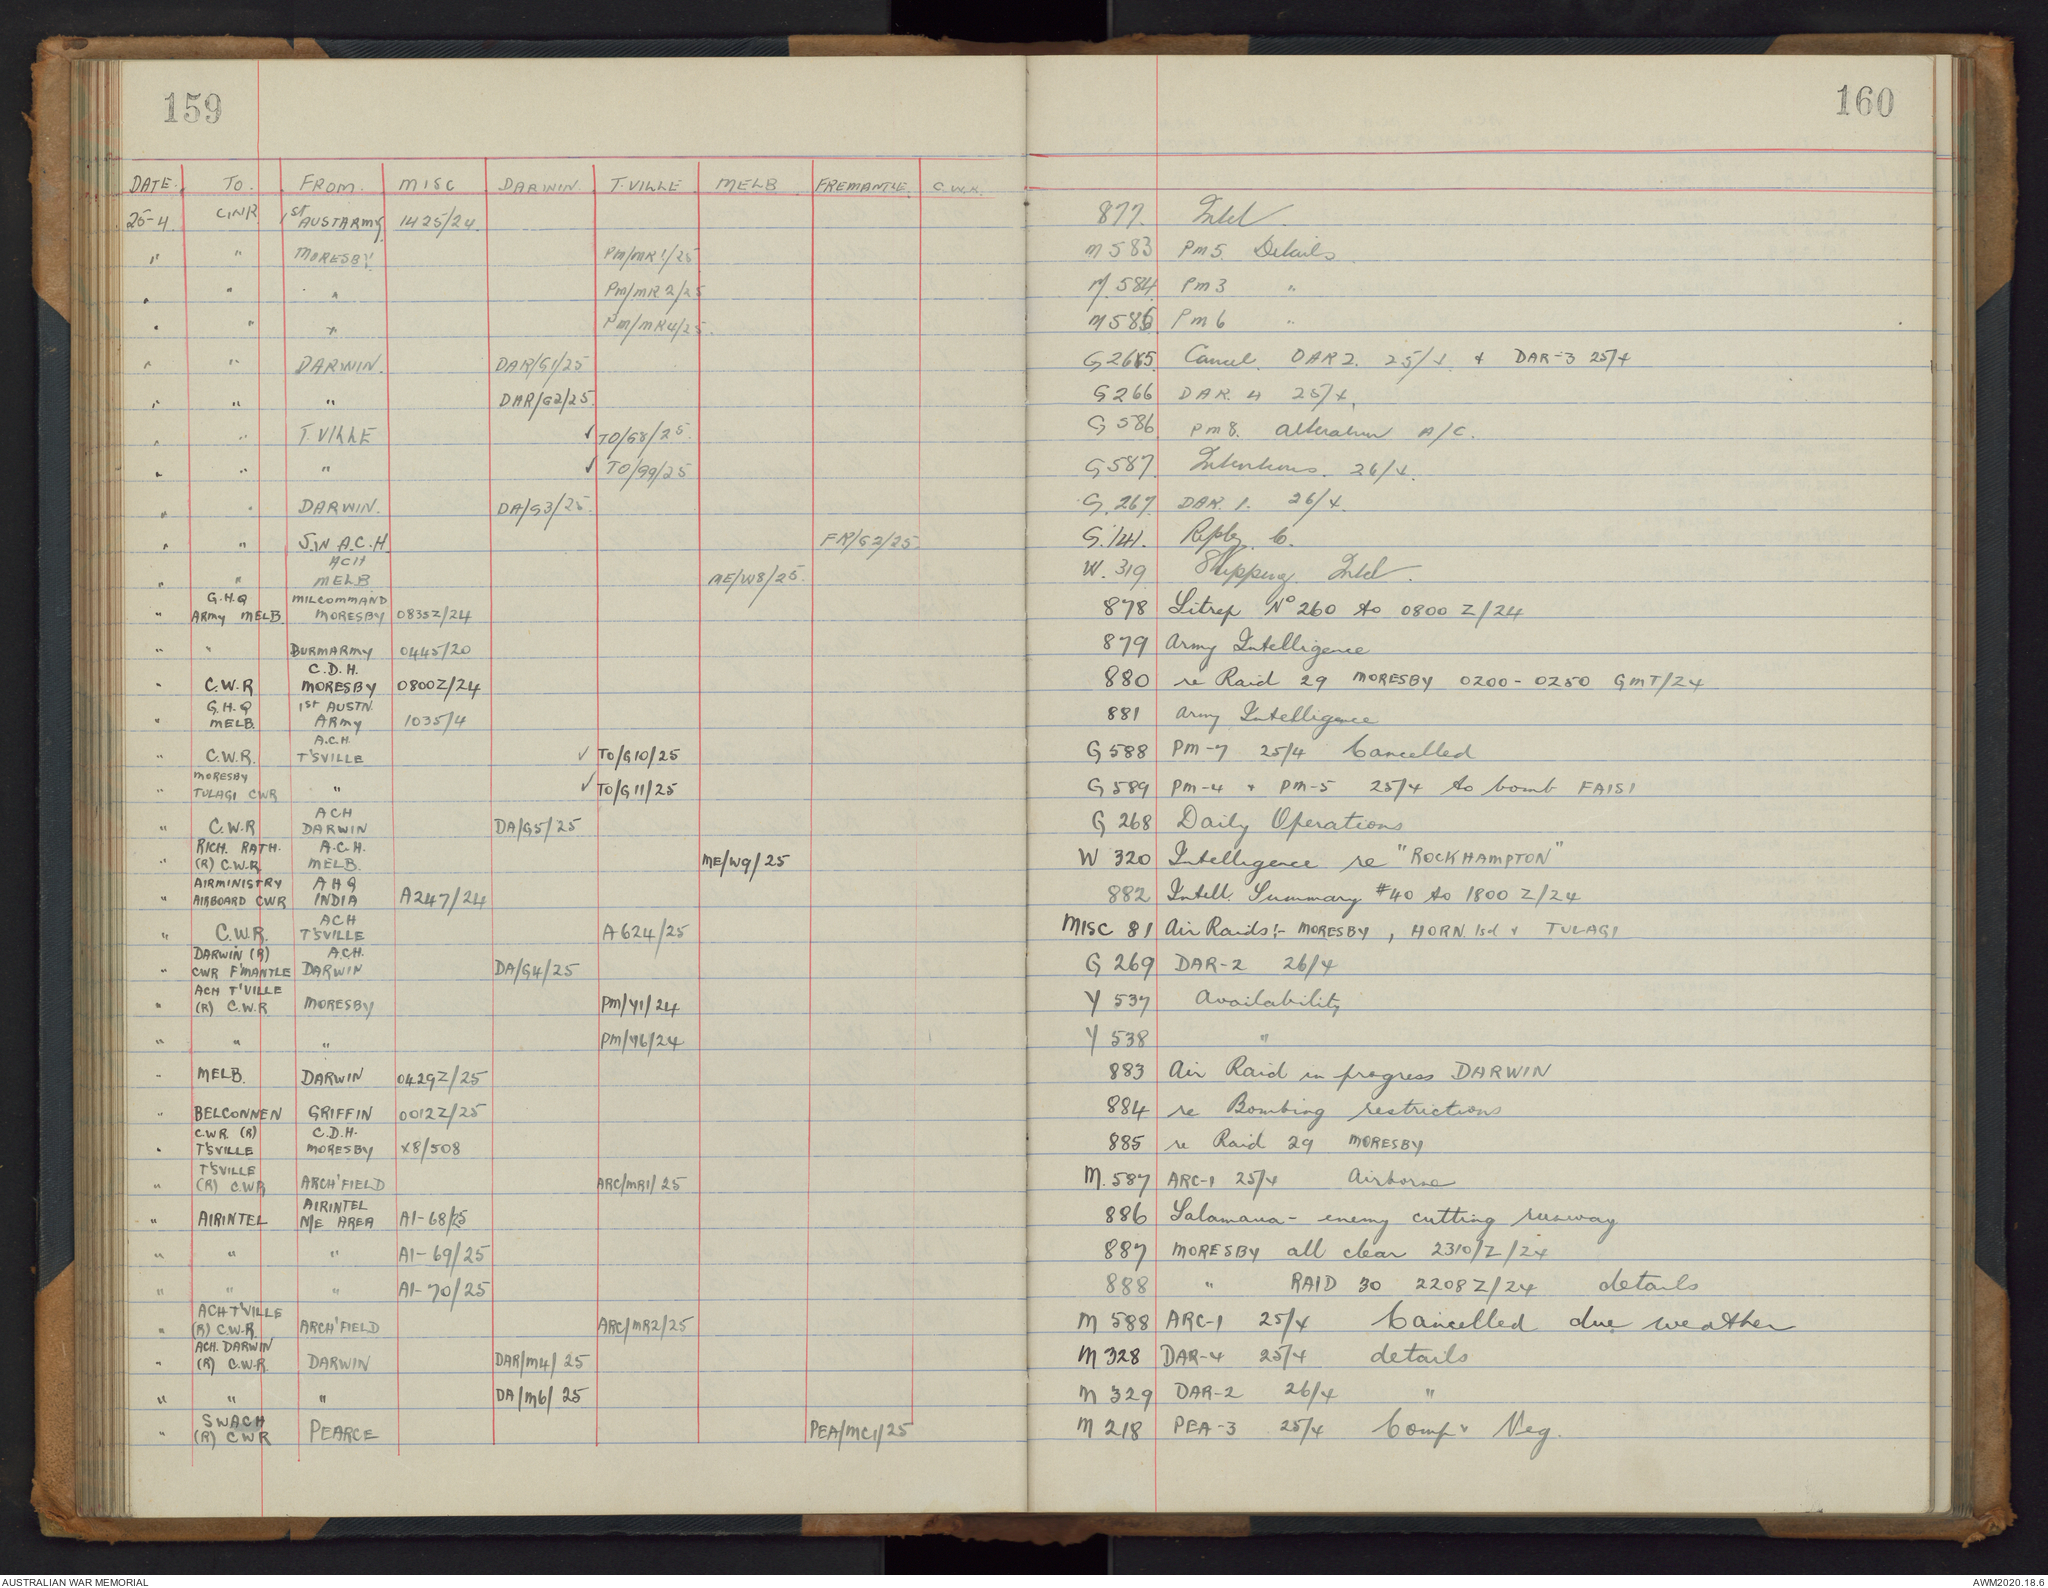 159
160
DATE. TO. FROM. MISC DARWIN. T.VILLE MELB FREMANTLE. C.W.R.
25-4 CWR 1st AUSTARMY 1425/24 877. Intel
" " MORESBY PM/MR1/25 M583 PM5. Details
" " " PM/MR2/25 M.584 PM3 "
" " " PM/MR4/25. M585 PM6 "
" " DARWIN. DAR/G1/25 G265. Cancel DAR2. 25/4. & DAR-3 25/4
" " " DAR/G2/25. G266 DAR. 4 25/4.
" " T.VILLE ✓ TO/G8/25. G586 PM8. alteration A/C.
" " " ✓ TO/G9/25 G587 Intentions. 26/4.
" " DARWIN. DA/G3/25. G.267. DAR. 1. 26/4.
" " S.W A.C.H FR/G2/25. G.141. Reply to.
ACH
" " MELB ME/W8/25. W.319 Shipping Intel.
G.H.Q MILCOMMAND
" ARMY MELB. MORESBY 0835Z/24 878 Sitrep No 260 to 0800 Z/24
" " BURMARMY 0445/20 879 Army Intelligence
C.D.H.
" C.W.R MORESBY 0800Z/24 880 re Raid 29 MORESBY 0200-0250 GMT/24
G.H.Q 1st AUSTN.
" MELB. ARMY 1035/4 881 Army Intelligence
A.C.H.
" C.W.R. T'SVILLE ✓ TO/G10/25 G588 PM-7 25/4 Cancelled
MORESBY
" TULAGI CWR " ✓ TO/G11/25 G589 PM-4 & PM-5 25/4 to bomb FAISI
ACH
" C.W.R DARWIN DA/G5/25 G268 Daily Operations
RICH. RATH. A.C.H.
" (R) C.W.R MELB. ME/W9/25 W 320 Intelligence re "ROCKHAMPTON"
AIRMINISTRY AHQ
" AIRBOARD CWR INDIA A247/24 882 Intell. Summary #40 to 1800 Z/24
ACH
" C.W.R. T'SVILLE A624/25 MISC 81 Air Raids:- MORESBY, HORN. Isd & TULAGI
DARWIN (R) A.C.H.
" CWR F'MANTLE DARWIN DA/G4/25 G 269 DAR-2 26/4
ACH T'VILLE
" (R) C.W.R MORESBY PM/Y1/24 Y 537 Availability
" " " PM/Y6/24 Y 538 "
" MELB. DARWIN 0429Z/25 883 Air Raid in progress DARWIN
" BELCONNEN GRIFFIN 0012Z/25 884 re Bombing restrictions
C.W.R. (R) C.D.H.
" T'SVILLE MORESBY X8/508 885 re Raid 29 MORESBY
T'SVILLE
" (R) C.W.R ARCH'FIELD ARC/MR1/25 M.587 ARC-1 25/4 Airborne
AIRINTEL
" AIRINTEL N/E AREA A1-68/25 886 Salamaua - enemy cutting runway
" " " A1-69/25 887 MORESBY all clear 2310/Z/24
" " " A1-70/25 888 " RAID 30 2208Z/24 details
ACH T'VILLE
" (R) C.W.R ARCH'FIELD ARC/MR2/25 M 588 ARC-1 25/4 Cancelled due weather
ACH. DARWIN
" (R) C.W.R. DARWIN DAR/M4/25 M 328 DAR-4 25/4 details
" " " DA/M6/25 M 329 DAR-2 26/4 "
SWACH
" (R) CWR PEARCE PEA/MC1/25 M 218 PEA-3 25/4 Comp. Neg.
AUSTRALIAN WAR MEMORIAL
AWM2020.18.6